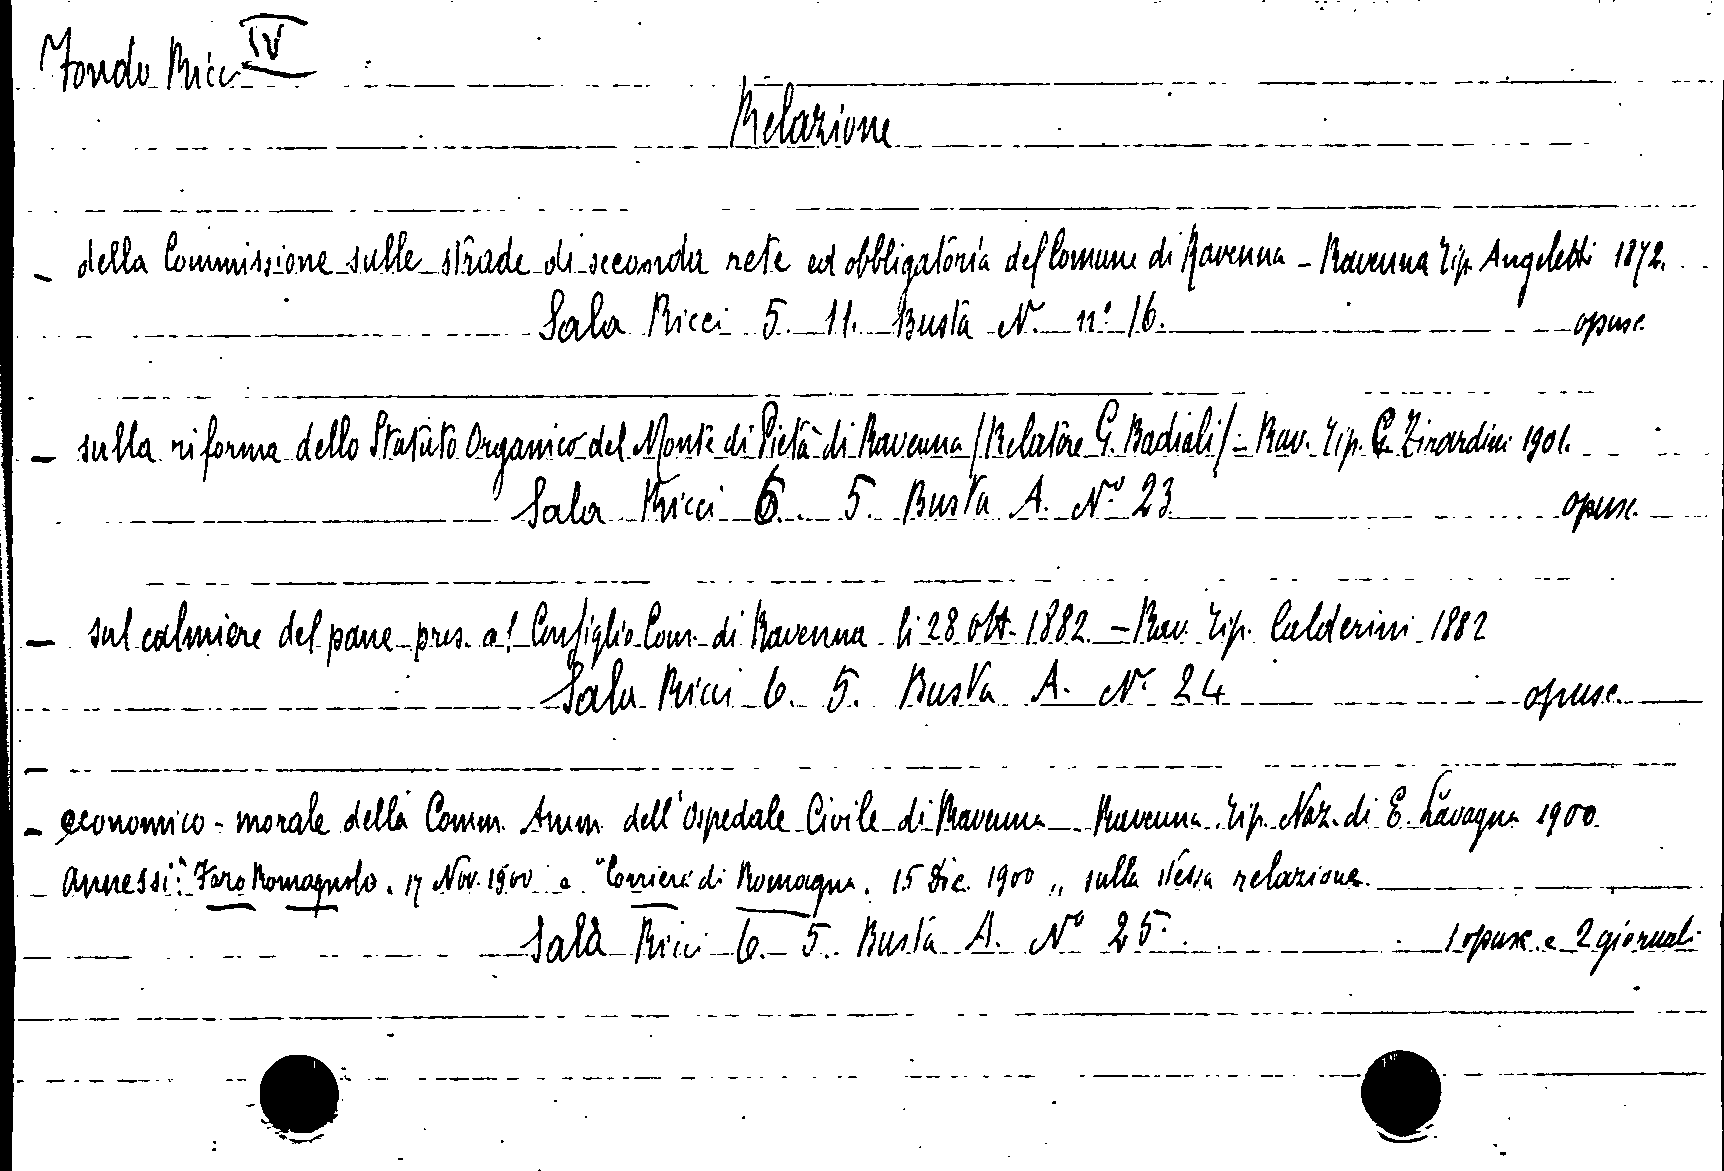 Fondo Ricci IV
Relazione
- della Commissione sulle strade di seconda rete ed obbligatoria del Comune di Ravenna - Ravenna Tip. Angeletti 1872.
Sala Ricci 5. 11. Busta N. n° 16. opusc.
- sulla riforma dello Statuto Organico del Monte di Pietà di Ravenna /Relatore G. Badiali/ - Rav. Tip. G. Zirardini 1901.
Sala Ricci 6. 5. Busta A. N° 23 opusc.
- sul calmiere del pane pres. al Consiglio Com. di Ravenna li 28 ott. 1882. - Rav. Tip. Calderini 1882
Sala Ricci 6. 5. Busta A. N° 24 opusc.
- economico-morale della Comm. Amm. dell'Ospedale Civile di Ravenna Ravenna Tip. Naz. di E. Lavagna 1900
annessi: Faro Romagnolo. 17 Nov. 1900 e "Corriere di Romagna. 15 Dic. 1900 „ sulla stessa relazione.
Sala Ricci 6. 5. Busta A. N° 25. 1 opusc. e 2 giornali